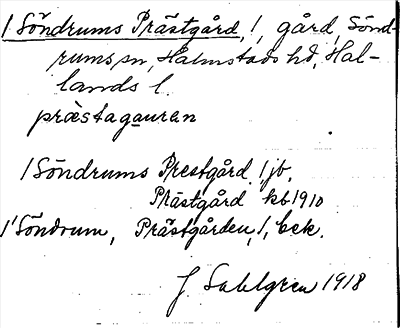 /Söndrums Prästgård, /, gård, Sönd-
rums sn, Halmstads hd, Hal-
lands l.
præstagauren
/Söndrums Prestgård, / jb.
Prästgård kb 1910
/Söndrum, Prästgården, /, bek.
J. Sahlgren 1918